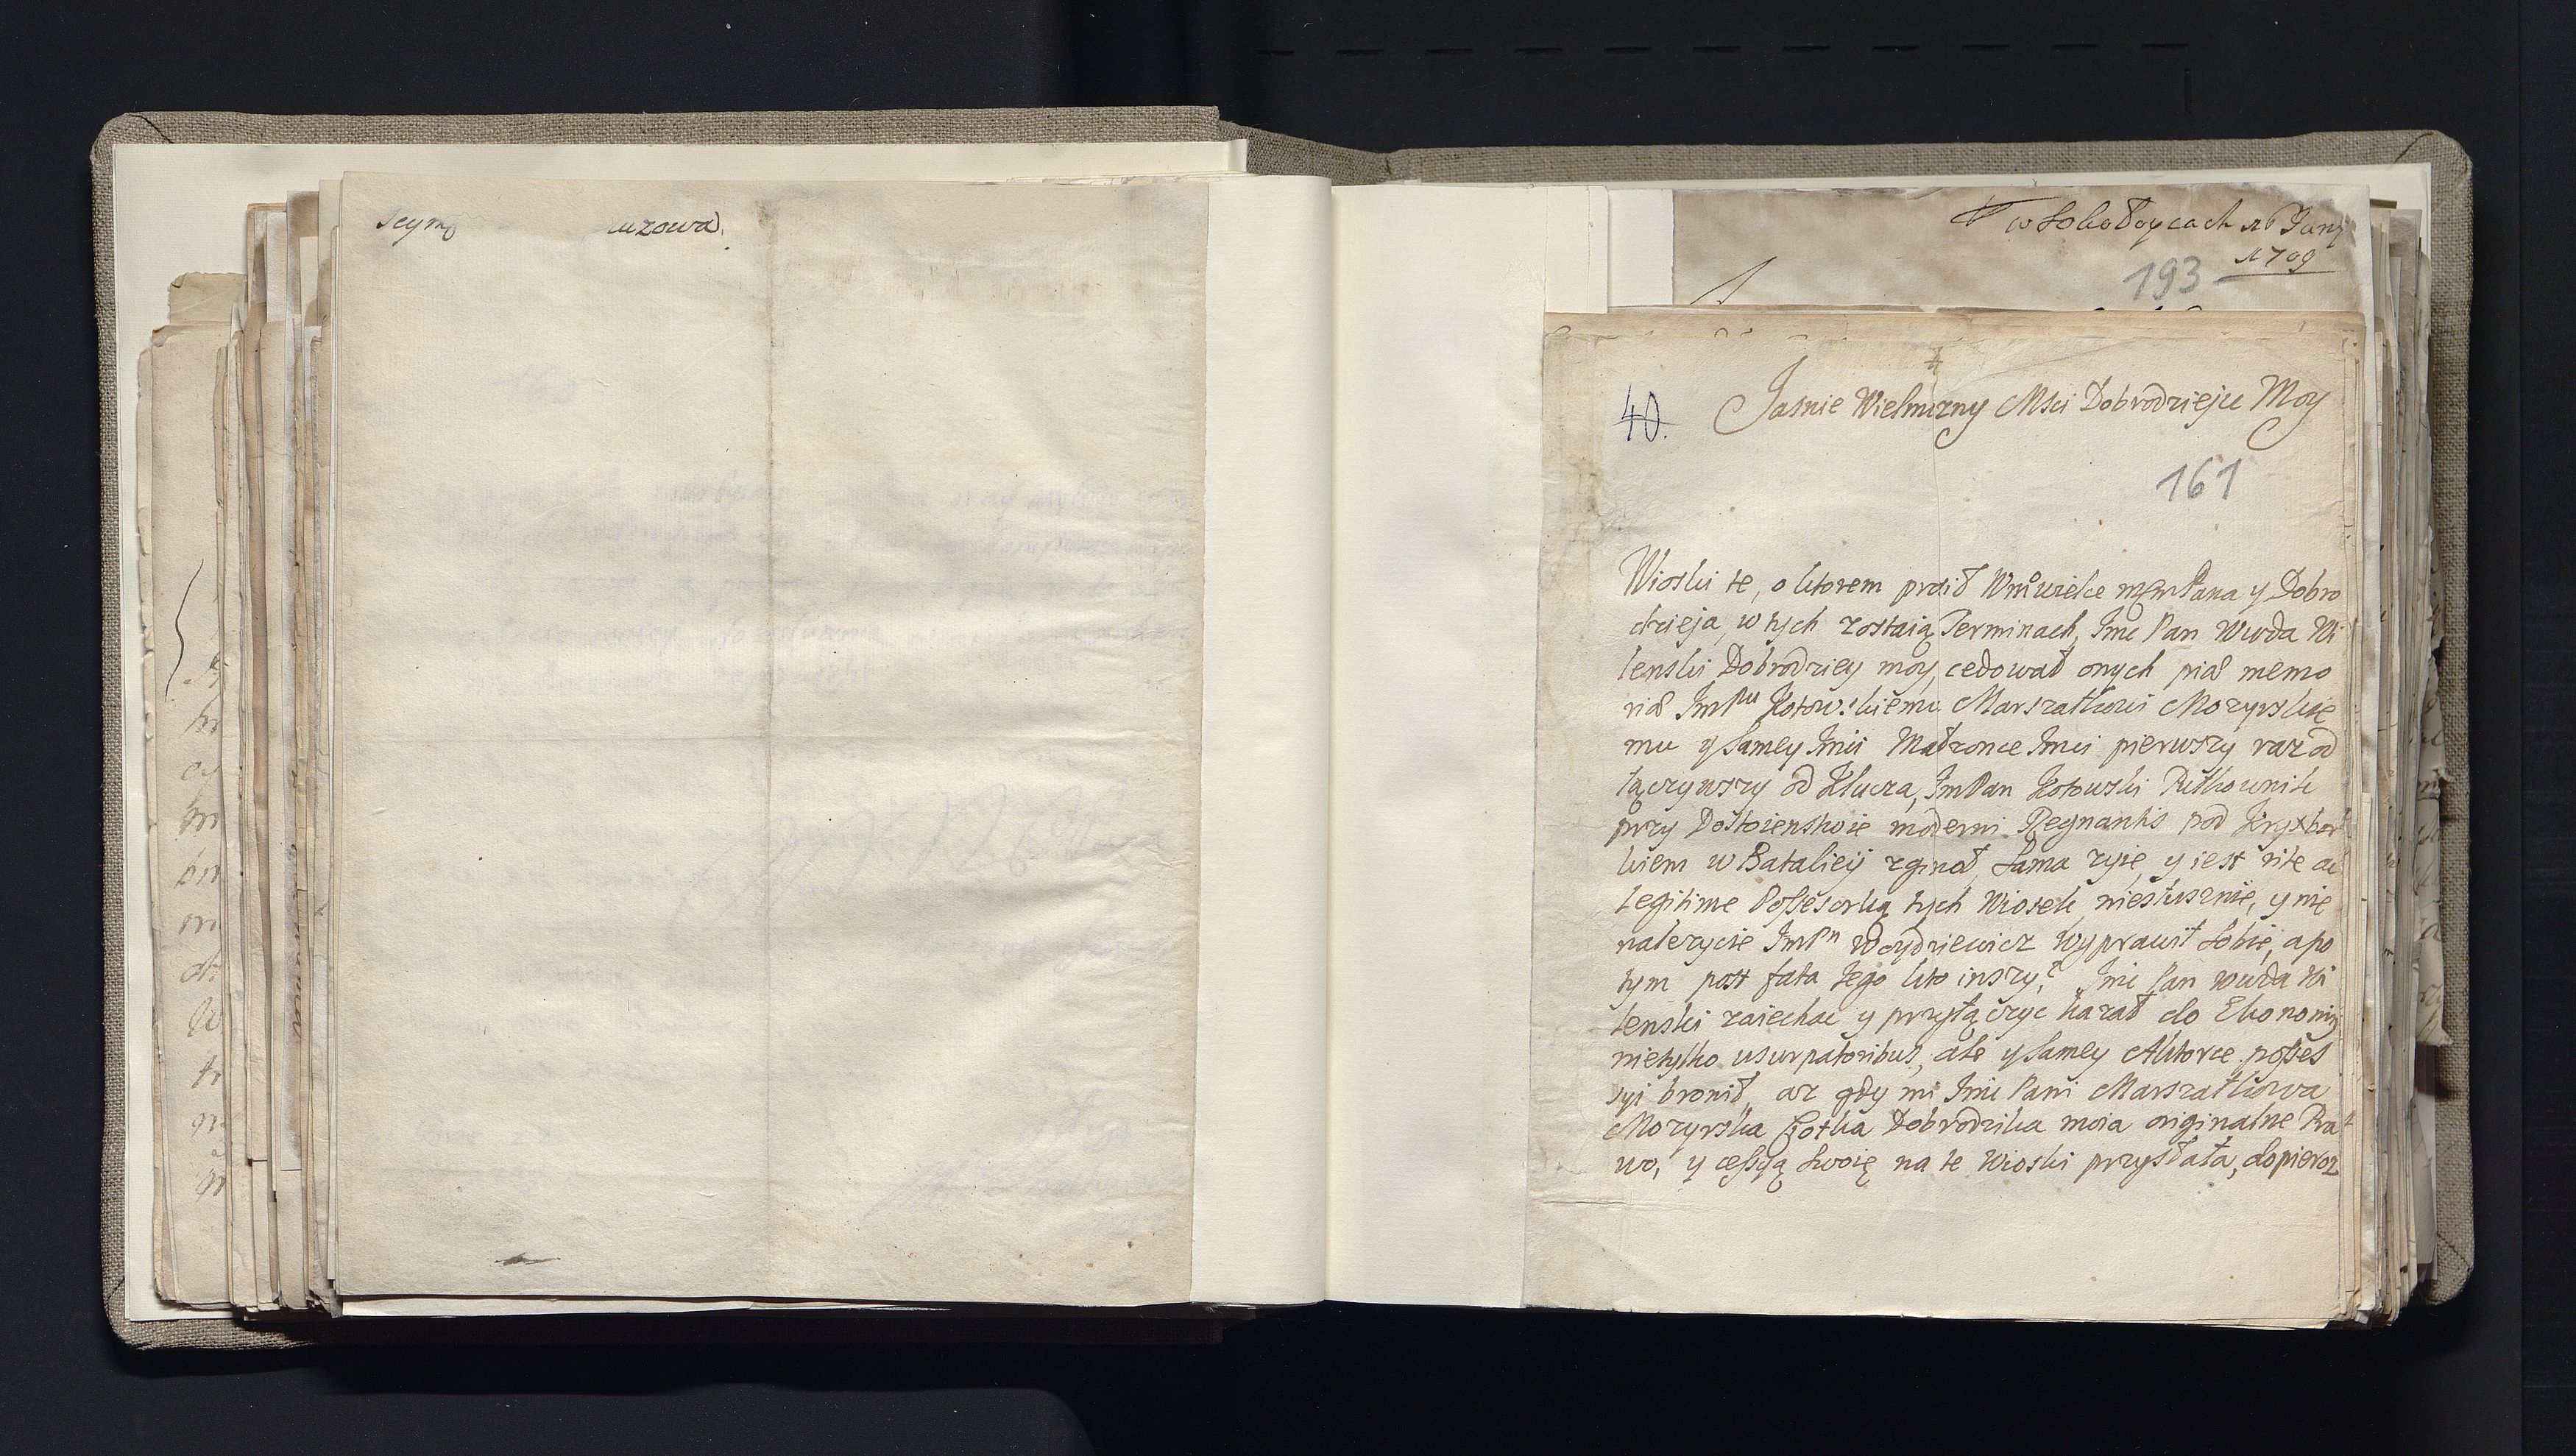 Seym uzowa.
w Sokołoycach 16 Junij
1709
193
40.
Jasnie Wielmozny Msci Dobrodzieju Moy
161
Wioski te, o ktorem prosił Wm wielce mgm Pana y Dobro
dzieja, w tych zostaią Terminach, Jme Pan Wwda Wi
lenski Dobrodziey moy, cedował onych piae memo
riae JmPnu Kotowskiemu Marszałkowi Mozyrskie
mu y samey Jmci Małzonce Jmci pierwszy raz od
łączywszy od Klucza, JmPan Kotowski Pułkownik
przy Dostoienstwie moderni Regnantis pod Kryzbor
kiem w Bataliey zginoł, sama zyie, y iest rite ac
legitime Possesorką tych Wiosek, niesłusznie, y nie
nalezycie JmPn Woydziewicz wyprawił sobie, a po
tym post fata tego kto inszy, Jme Pan wwda Wi
lenski zaiechac y przyłączyc kazał do Ekonomij
nietylko usurpatoribus, ale y samey Aktorce posses
syi bronił, az gdy mi Jme Pani Marszałkowa
Mozyrska Ciotka Dobrodzika moia originalne Pra
wo, y cessyą swoię na te Wioski przysłała, dopieroz